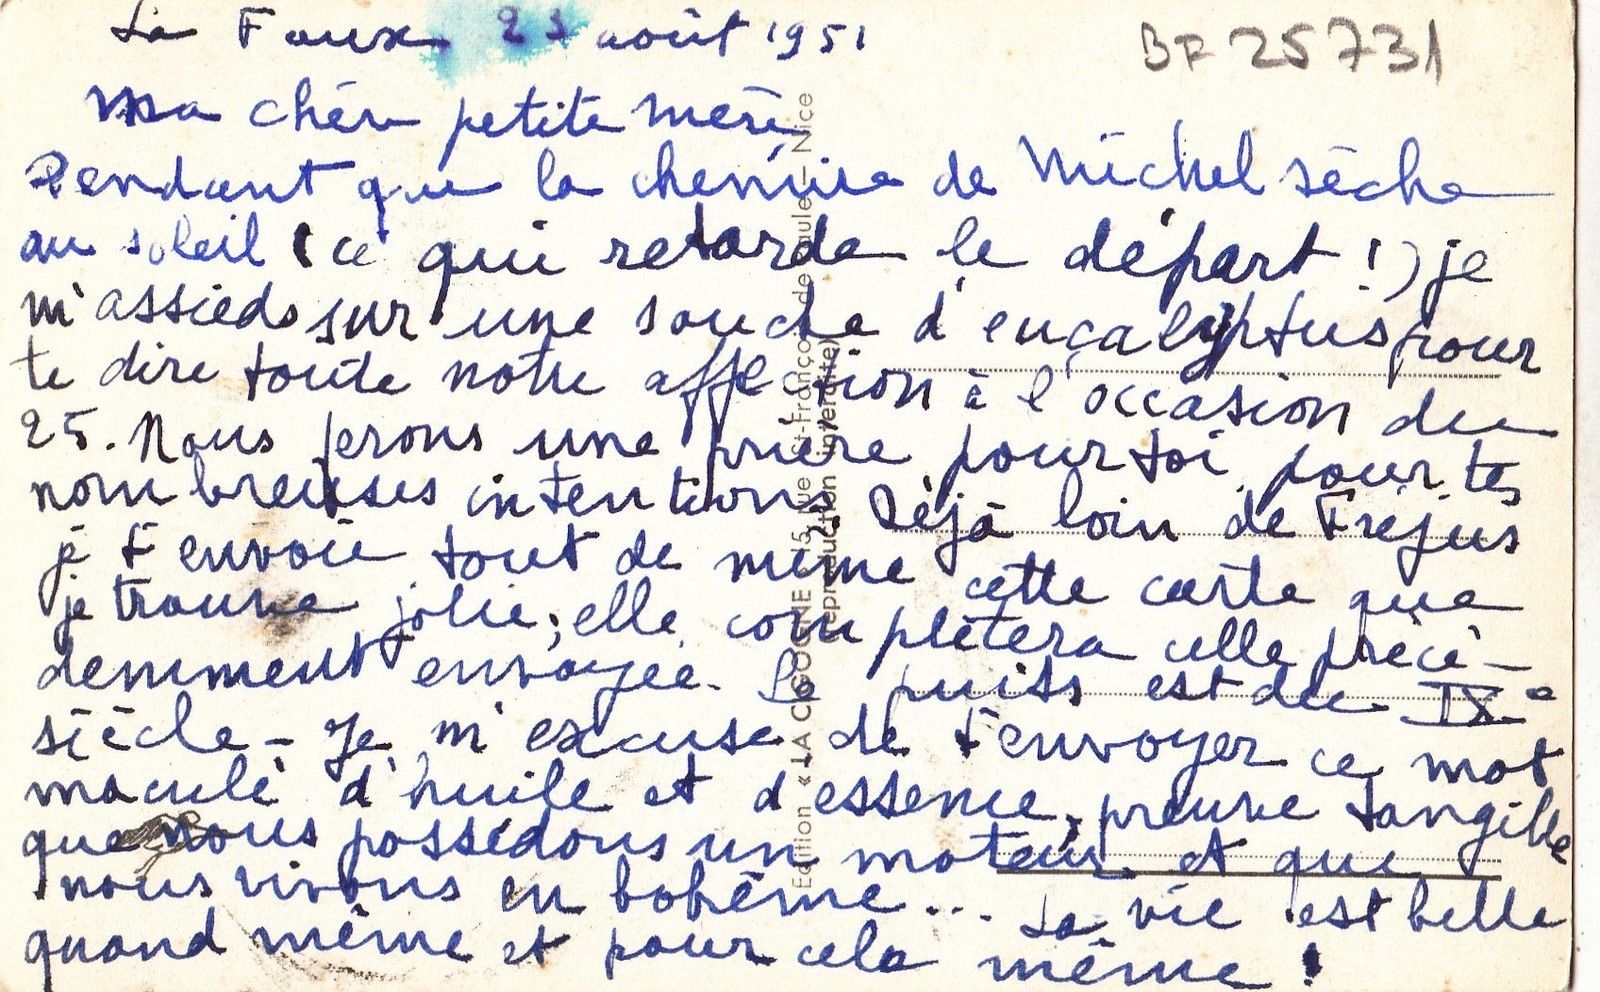 La Foux 23 août 1951
BF 25731
Ma chère petite mère
Pendant que la chemise de Michel sèche
au soleil (ce qui retarde le départ !) je
m'assieds sur une souche d'eucalyptus pour
te dire toute notre affection à l'occasion du
25. Nous ferons une prière pour toi, pour tes
nombreuses intentions. Déjà loin de Fréjus
je t'envoie tout de même cette carte que
je trouve jolie; elle complètera celle précé-
demment envoyée. Le puits est du IXe
siècle - Je m'excuse de t'envoyer ce mot
maculé d'huile et d'essence, preuve tangible
que nous possédons un moteur et que
nous vivons en bohême... La vie est belle
quand même et pour cela même !
Edition « LA CIGOGNE » 15, rue St-François-de-Paule - Nice
(reproduction interdite)